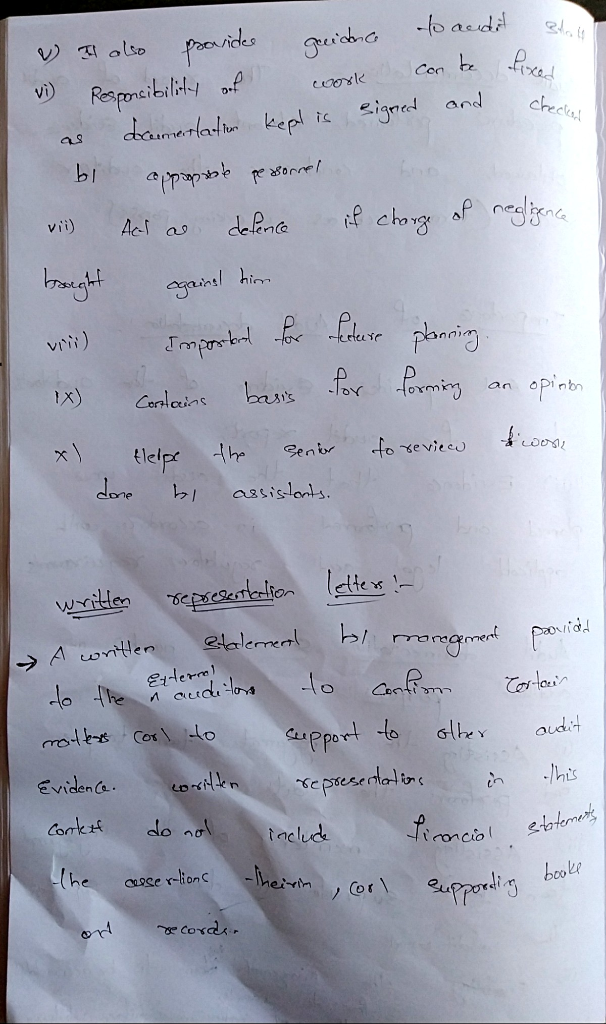 v) It also provides guidance to audit staff
vi) Responsibility of work can be fixed
as documentation kept is signed and checked
by appropriate personnel
vii) Act as defence if charge of negligence
brought against him
viii) Important for future planning.
ix) Contains basis for forming an opinion
x) Helps the senior to review work
done by assistants.
written representation letters :-
→ A written statement by management provided
to the External auditors to confirm certain
matters (or) to support to other audit
Evidence. written representations in this
context do not include financial statements,
the assertions therein, (or) supporting books
and records.